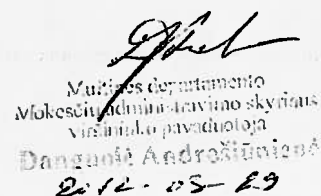 Muitinės departamento
Mokesčių administravimo skyriaus
viršininko pavaduotoja
Danguolė Androšiūnienė
2012-05-29